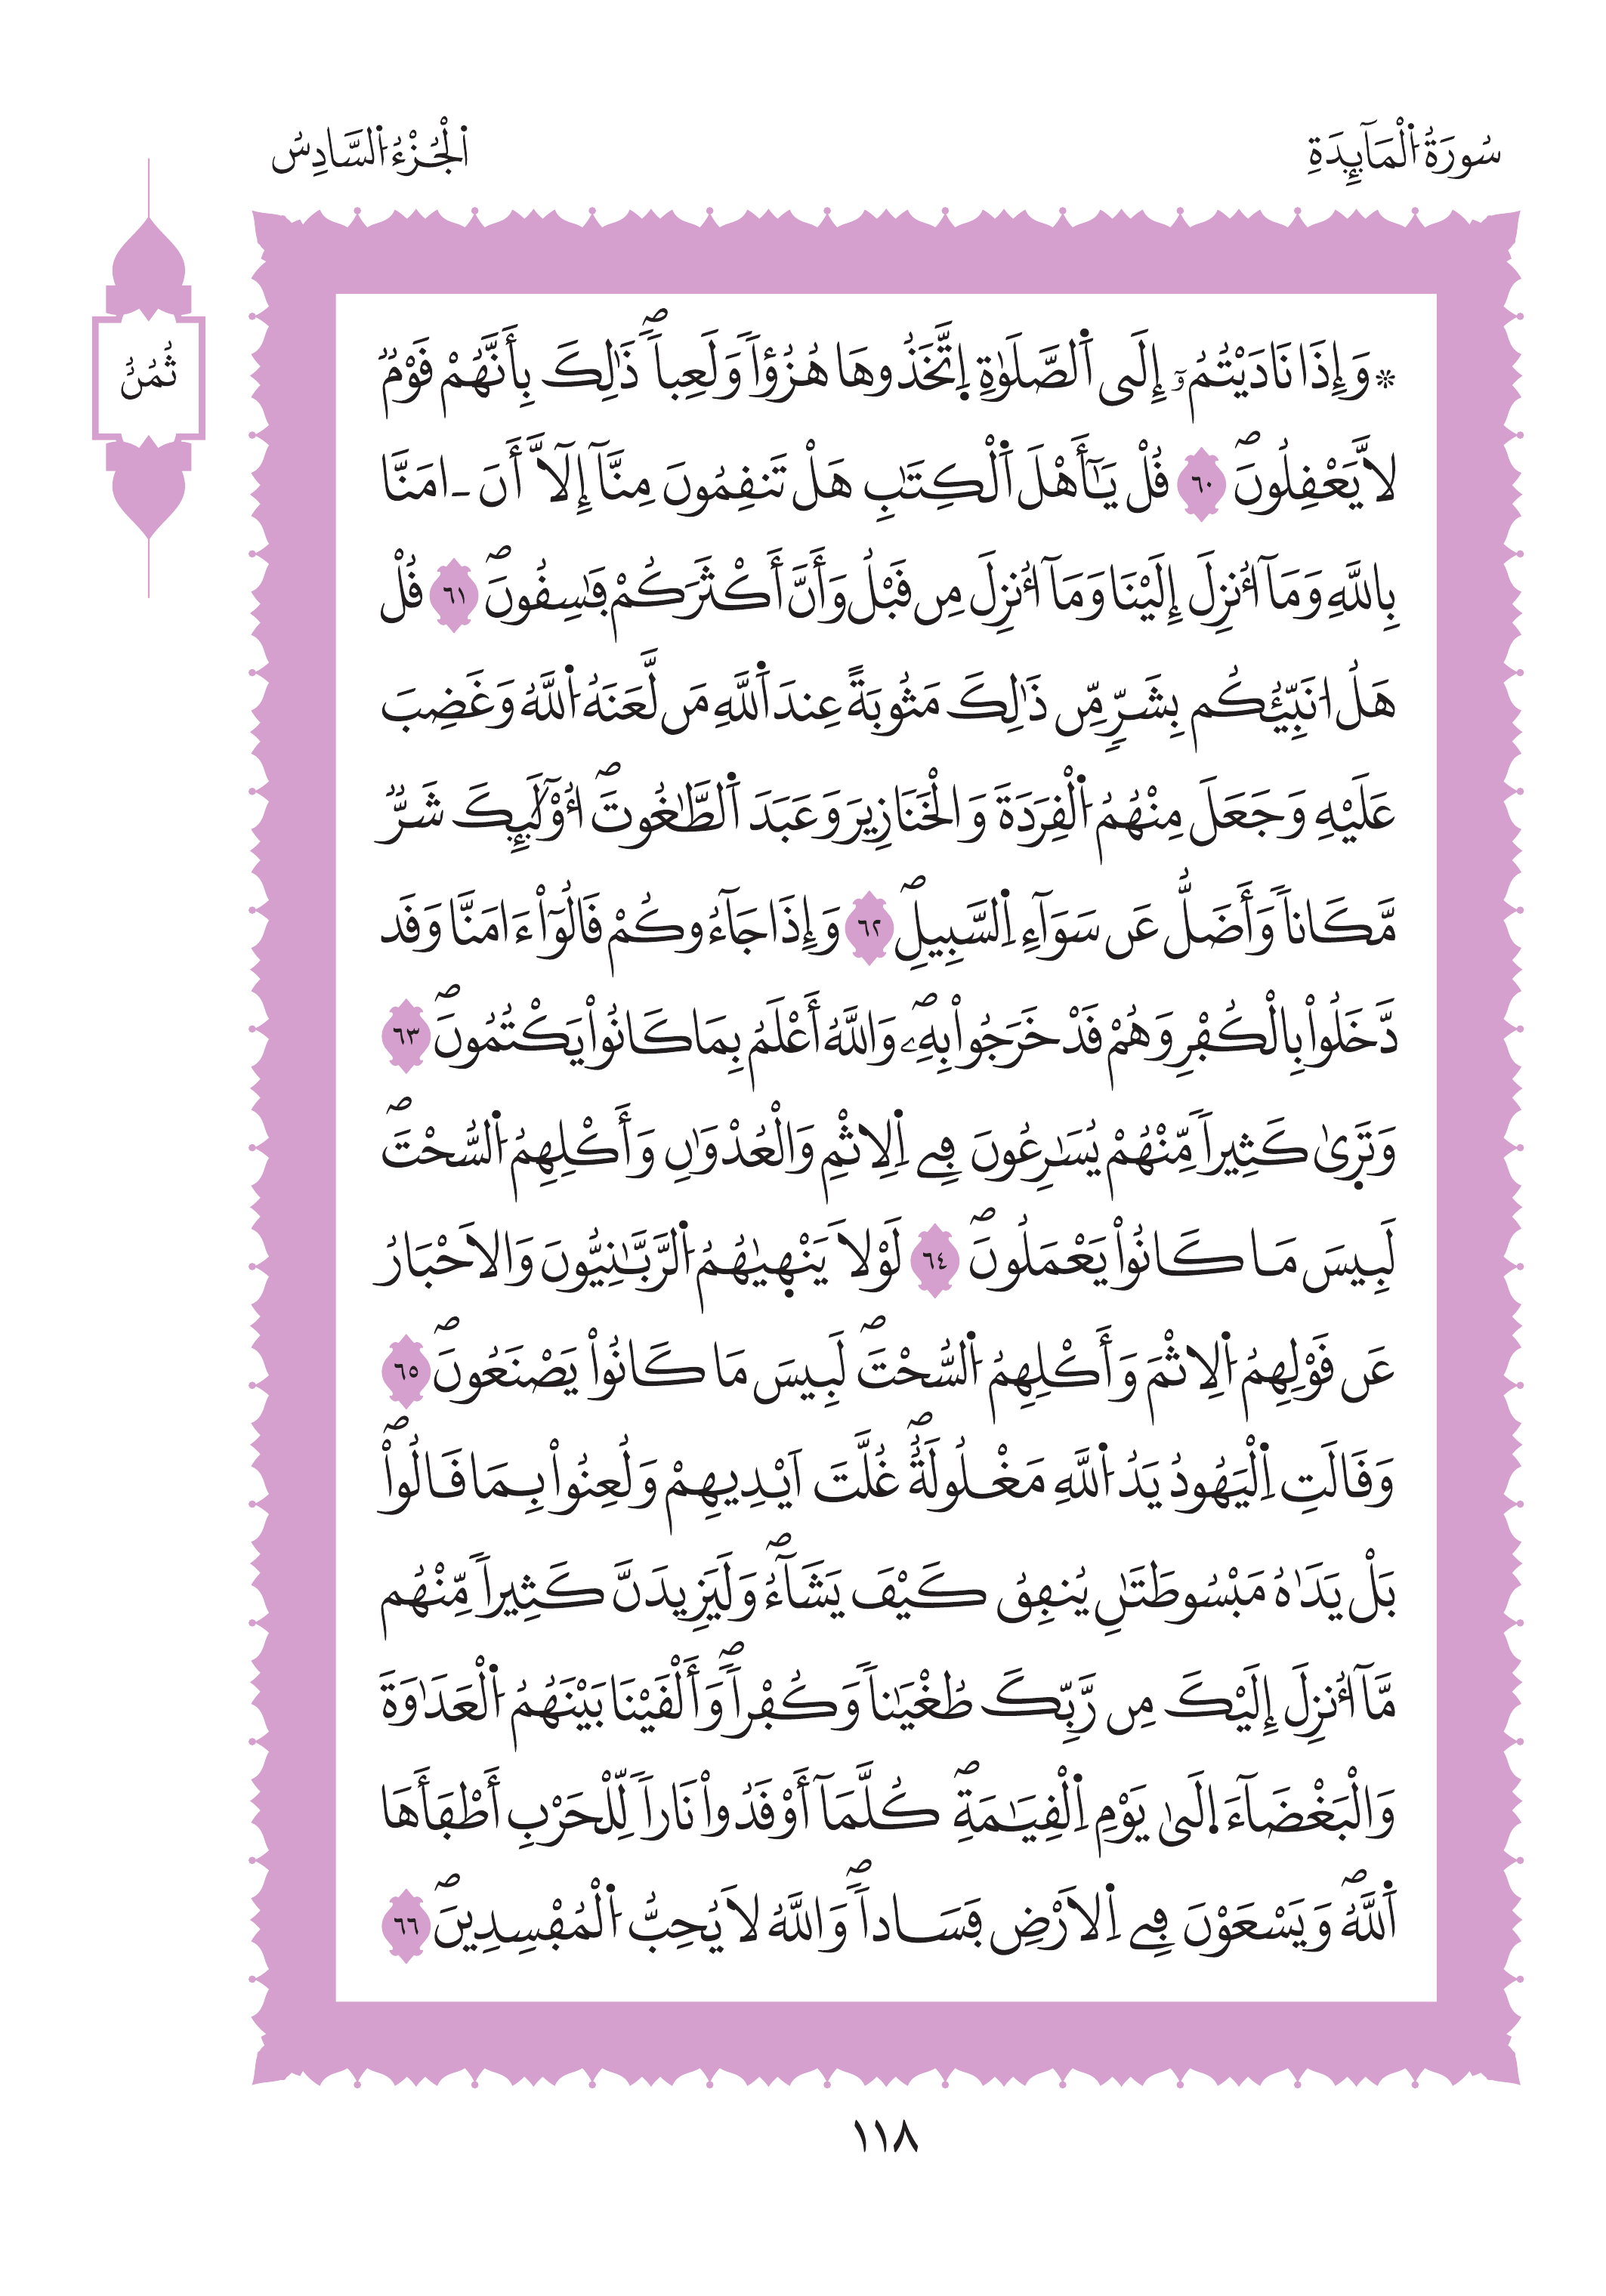 سُورَةُ اُ۬لْمَآئِدَةِ
اَ۬لْجُزْءُ اُ۬لسَّادِسُ
ثُمُنُ
۞ وَإِذَا نَادَيْتُمُۥٓ إِلَى اَ۬لصَّلَوٰةِ اِ۪تَّخَذُوهَا هُزُؤاٗ وَلَعِباٗۖ ذَٰلِكَ بِأَنَّهُمْ قَوْمٞ
لَّا يَعْقِلُونَۖ ٦٠ قُلْ يَٰٓأَهْلَ اَ۬لْكِتَٰبِ هَلْ تَنقِمُونَ مِنَّآ إِلَّآ أَنَ ـ امَنَّا
بِاللَّهِ وَمَآ أُنزِلَ إِلَيْنَا وَمَآ أُنزِلَ مِن قَبْلُ وَأَنَّ أَكْثَرَكُمْ فَٰسِقُونَۖ ٦١ قُلْ
هَلُ ا۟نَبِّئُكُم بِشَرّٖ مِّن ذَٰلِكَ مَثُوبَةً عِندَ اَ۬للَّهِ مَن لَّعَنَهُ اُ۬للَّهُ وَغَضِبَ
عَلَيْهِ وَجَعَلَ مِنْهُمُ اُ۬لْقِرَدَةَ وَالْخَنَازِيرَ وَعَبَدَ اَ۬لطَّٰغُوتَۖ أُوْلَٰٓئِكَ شَرّٞ
مَّكَاناٗ وَأَضَلُّ عَن سَوَآءِ اِ۬لسَّبِيلِۖ ٦٢ وَإِذَا جَآءُوكُمْ قَالُوٓاْ ءَامَنَّا وَقَد
دَّخَلُواْ بِالْكُفْرِ وَهُمْ قَدْ خَرَجُواْ بِهِۦۖ وَاللَّهُ أَعْلَمُ بِمَا كَانُواْ يَكْتُمُونَۖ ٦٣
وَتَر۪ىٰ كَثِيراٗ مِّنْهُمْ يُسَٰرِعُونَ فِے اِ۬لِاثْمِ وَالْعُدْوَٰنِ وَأَكْلِهِمُ اُ۬لسُّحْتَۖ
لَبِيسَ مَا كَانُواْ يَعْمَلُونَۖ ٦٤ لَوْلَا يَنْه۪يٰهُمُ اُ۬لرَّبَّٰنِيُّونَ وَالَاحْبَارُ
عَن قَوْلِهِمُ اُ۬لِاثْمَ وَأَكْلِهِمُ اُ۬لسُّحْتَۖ لَبِيسَ مَا كَانُواْ يَصْنَعُونَۖ ٦٥
وَقَالَتِ اِ۬لْيَهُودُ يَدُ اُ۬للَّهِ مَغْلُولَةٌۖ غُلَّتَ اَيْدِيهِمْ وَلُعِنُواْ بِمَا قَالُواْۖ
بَلْ يَدَٰهُ مَبْسُوطَتَٰنِ يُنفِقُ كَيْفَ يَشَآءُۖ وَلَيَزِيدَنَّ كَثِيراٗ مِّنْهُم
مَّآ أُنزِلَ إِلَيْكَ مِن رَّبِّكَ طُغْيَٰناٗ وَكُفْراٗۖ وَأَلْقَيْنَا بَيْنَهُمُ اُ۬لْعَدَٰوَةَ
وَالْبَغْضَآءَ اِ۪لَىٰ يَوْمِ اِ۬لْقِيَٰمَةِۖ كُلَّمَآ أَوْقَدُواْ نَاراٗ لِّلْحَرْبِ أَطْفَأَهَا
اَ۬للَّهُۖ وَيَسْعَوْنَ فِے اِ۬لَارْضِ فَسَاداٗۖ وَاللَّهُ لَا يُحِبُّ اُ۬لْمُفْسِدِينَۖ ٦٦
١١٨